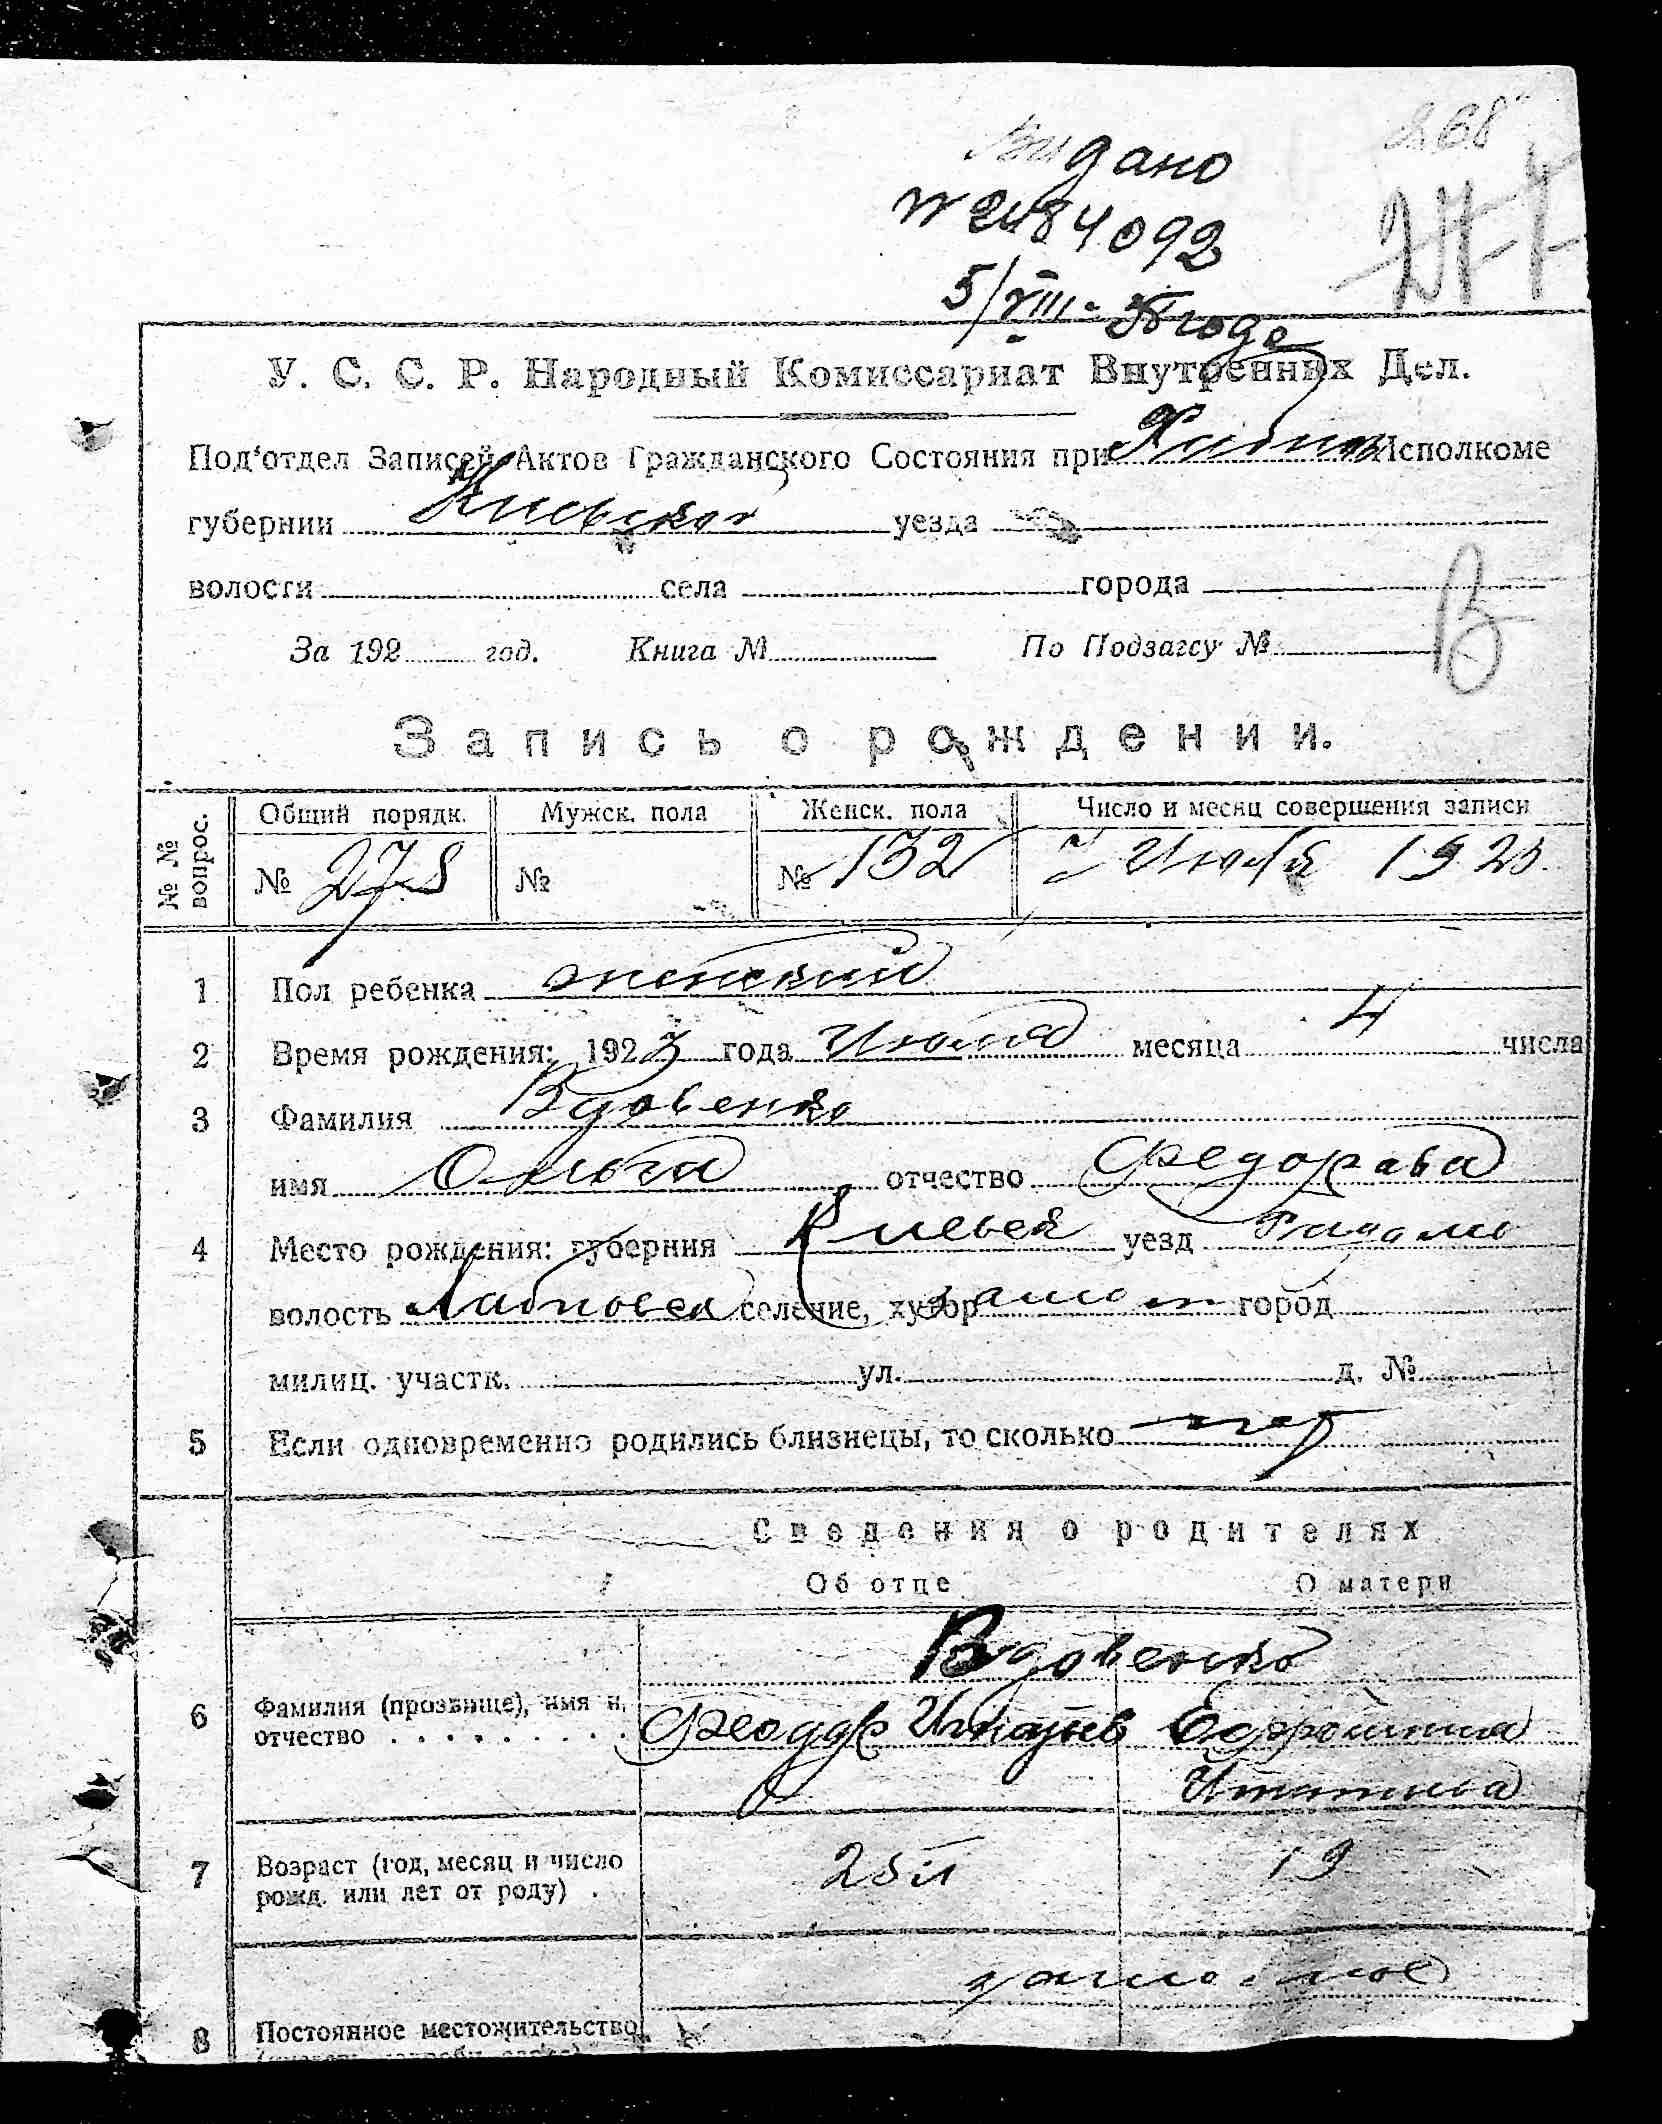 268
Видано
№ 2484092
5/VIII - года
У. С. С. Р. Народный Комиссариат Внутренних Дел.
Под'отдел Записей Актов Гражданского Состояния при Исполкоме
губернии Киевской уезда
волости села города
За 192 год. Книга № По Подзагсу №
В
Запись о рождении.
№ № вопрос.
Общий порядк. Мужск. пола Женск. пола Число и месяц совершения записи
№ 278 № № 132 7 Июля 1923
1 Пол ребенка женский
2 Время рождения: 1923 года Июля месяца 4 числа
3 Фамилия Вдовенко
имя Ольга отчество Федорова
4 Место рождения: губерния Киевск уезд
волость селение, хутор город
милиц. участк. ул. д. №
5 Если одновременно родились близнецы, то сколько
Сведения о родителях
Об отце О матери
Вдовенко
6 Фамилия (прозвище), имя и отчество Феодор Ефросиния
7 Возраст (год, месяц и число рожд. или лет от роду) 25 л 19
8 Постоянное местожительство